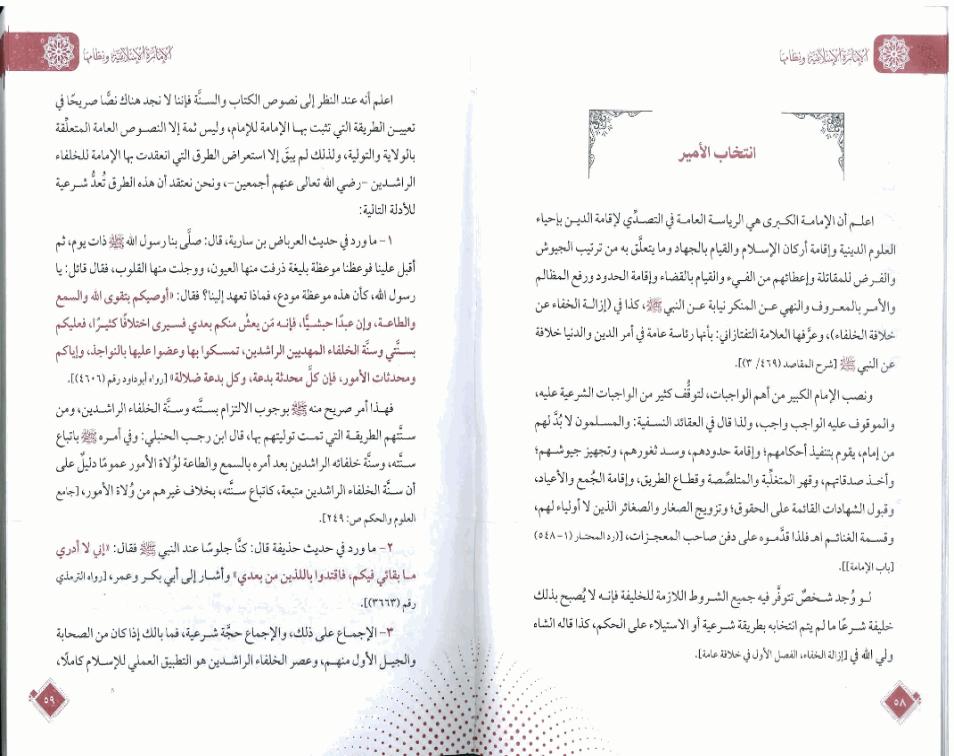 الإمارة الإسلامية ونظامها
انتخاب الأمير
اعلم أن الإمامة الكبرى هي الرياسة العامة في التصدِّي لإقامة الدين بإحياء
العلوم الدينية وإقامة أركان الإسلام والقيام بالجهاد وما يتعلَّق به من ترتيب الجيوش
والفرض للمقاتلة وإعطائهم من الفيء والقيام بالقضاء وإقامة الحدود ورفع المظالم
والأمر بالمعروف والنهي عن المنكر نيابة عن النبي ﷺ، كذا في (إزالة الخفاء عن
خلافة الخلفاء)، وعرَّفها العلامة التفتازاني: بأنها رئاسة عامة في أمر الدين والدنيا خلافة
عن النبي ﷺ [شرح المقاصد (٤٦٩/ ٣)].
ونصب الإمام الكبير من أهم الواجبات، لتوقُّف كثير من الواجبات الشرعية عليه،
والموقوف عليه الواجب واجب، ولذا قال في العقائد النسفية: والمسلمون لا بُدَّ لهم
من إمام، يقوم بتنفيذ أحكامهم؛ وإقامة حدودهم، وسد ثغورهم، وتجهيز جيوشهم؛
وأخذ صدقاتهم، وقهر المتغلِّبة والمتلصِّصة وقطاع الطريق، وإقامة الجُمع والأعياد،
وقبول الشهادات القائمة على الحقوق؛ وتزويج الصغار والصغائر الذين لا أولياء لهم،
وقسمة الغنائم اهـ فلذا قدَّموه على دفن صاحب المعجزات، [(رد المحتار (١-٥٤٨)
باب الإمامة)].
لو وُجد شخصٌ تتوفَّر فيه جميع الشروط اللازمة للخليفة فإنه لا يُصبح بذلك
خليفة شرعًا ما لم يتم انتخابه بطريقة شرعية أو الاستيلاء على الحكم، كذا قاله الشاه
ولي الله في [إزالة الخفاء، الفصل الأول في خلافة عامة].
٥٨
الإمارة الإسلامية ونظامها
اعلم أنه عند النظر إلى نصوص الكتاب والسنَّة فإننا لا نجد هناك نصًّا صريحًا في
تعيين الطريقة التي تثبت بها الإمامة للإمام، وليس ثمة إلا النصوص العامة المتعلِّقة
بالولاية والتولية، ولذلك لم يبقَ إلا استعراض الطرق التي انعقدت بها الإمامة للخلفاء
الراشدين -رضي الله تعالى عنهم أجمعين-، ونحن نعتقد أن هذه الطرق تُعدُّ شرعية
للأدلة التالية:
١- ما ورد في حديث العرباض بن سارية، قال: صلَّى بنا رسول الله ﷺ ذات يوم، ثم
أقبل علينا فوعظنا موعظة بليغة ذرفت منها العيون، ووجلت منها القلوب، فقال قائل: يا
رسول الله، كأن هذه موعظة مودع، فماذا تعهد إلينا؟ فقال: «أوصيكم بتقوى الله والسمع
والطاعة، وإن عبدًا حبشيًّا، فإنه مَن يعشْ منكم بعدي فسيرى اختلافًا كثيرًا، فعليكم
بسنَّتي وسنَّة الخلفاء المهديين الراشدين، تمسكوا بها وعضوا عليها بالنواجذ، وإياكم
ومحدثات الأمور، فإن كلَّ محدثة بدعة، وكل بدعة ضلالة» [رواه أبوداود رقم (٤٦٠٦)].
فهذا أمر صريح منه ﷺ بوجوب الالتزام بسنَّته وسنَّة الخلفاء الراشدين، ومن
سنَّتهم الطريقة التي تمت توليتهم بها، قال ابن رجب الحنبلي: وفي أمره ﷺ باتباع
سنَّته، وسنَّة خلفائه الراشدين بعد أمره بالسمع والطاعة لوُلاة الأمور عمومًا دليلٌ على
أن سنَّة الخلفاء الراشدين متبعة، كاتباع سنَّته، بخلاف غيرهم من وُلاة الأمور، [جامع
العلوم والحكم ص: ٢٤٩].
٢- ما ورد في حديث حذيفة قال: كنَّا جلوسًا عند النبي ﷺ فقال: «إني لا أدري
ما بقائي فيكم، فاقتدوا باللذين من بعدي» وأشار إلى أبي بكر وعمر، [رواه الترمذي
رقم (٣٦٦٣)].
٣- الإجماع على ذلك، والإجماع حجَّة شرعية، فما بالك إذا كان من الصحابة
والجيل الأول منهم، وعصر الخلفاء الراشدين هو التطبيق العملي للإسلام كاملًا،
٥٩